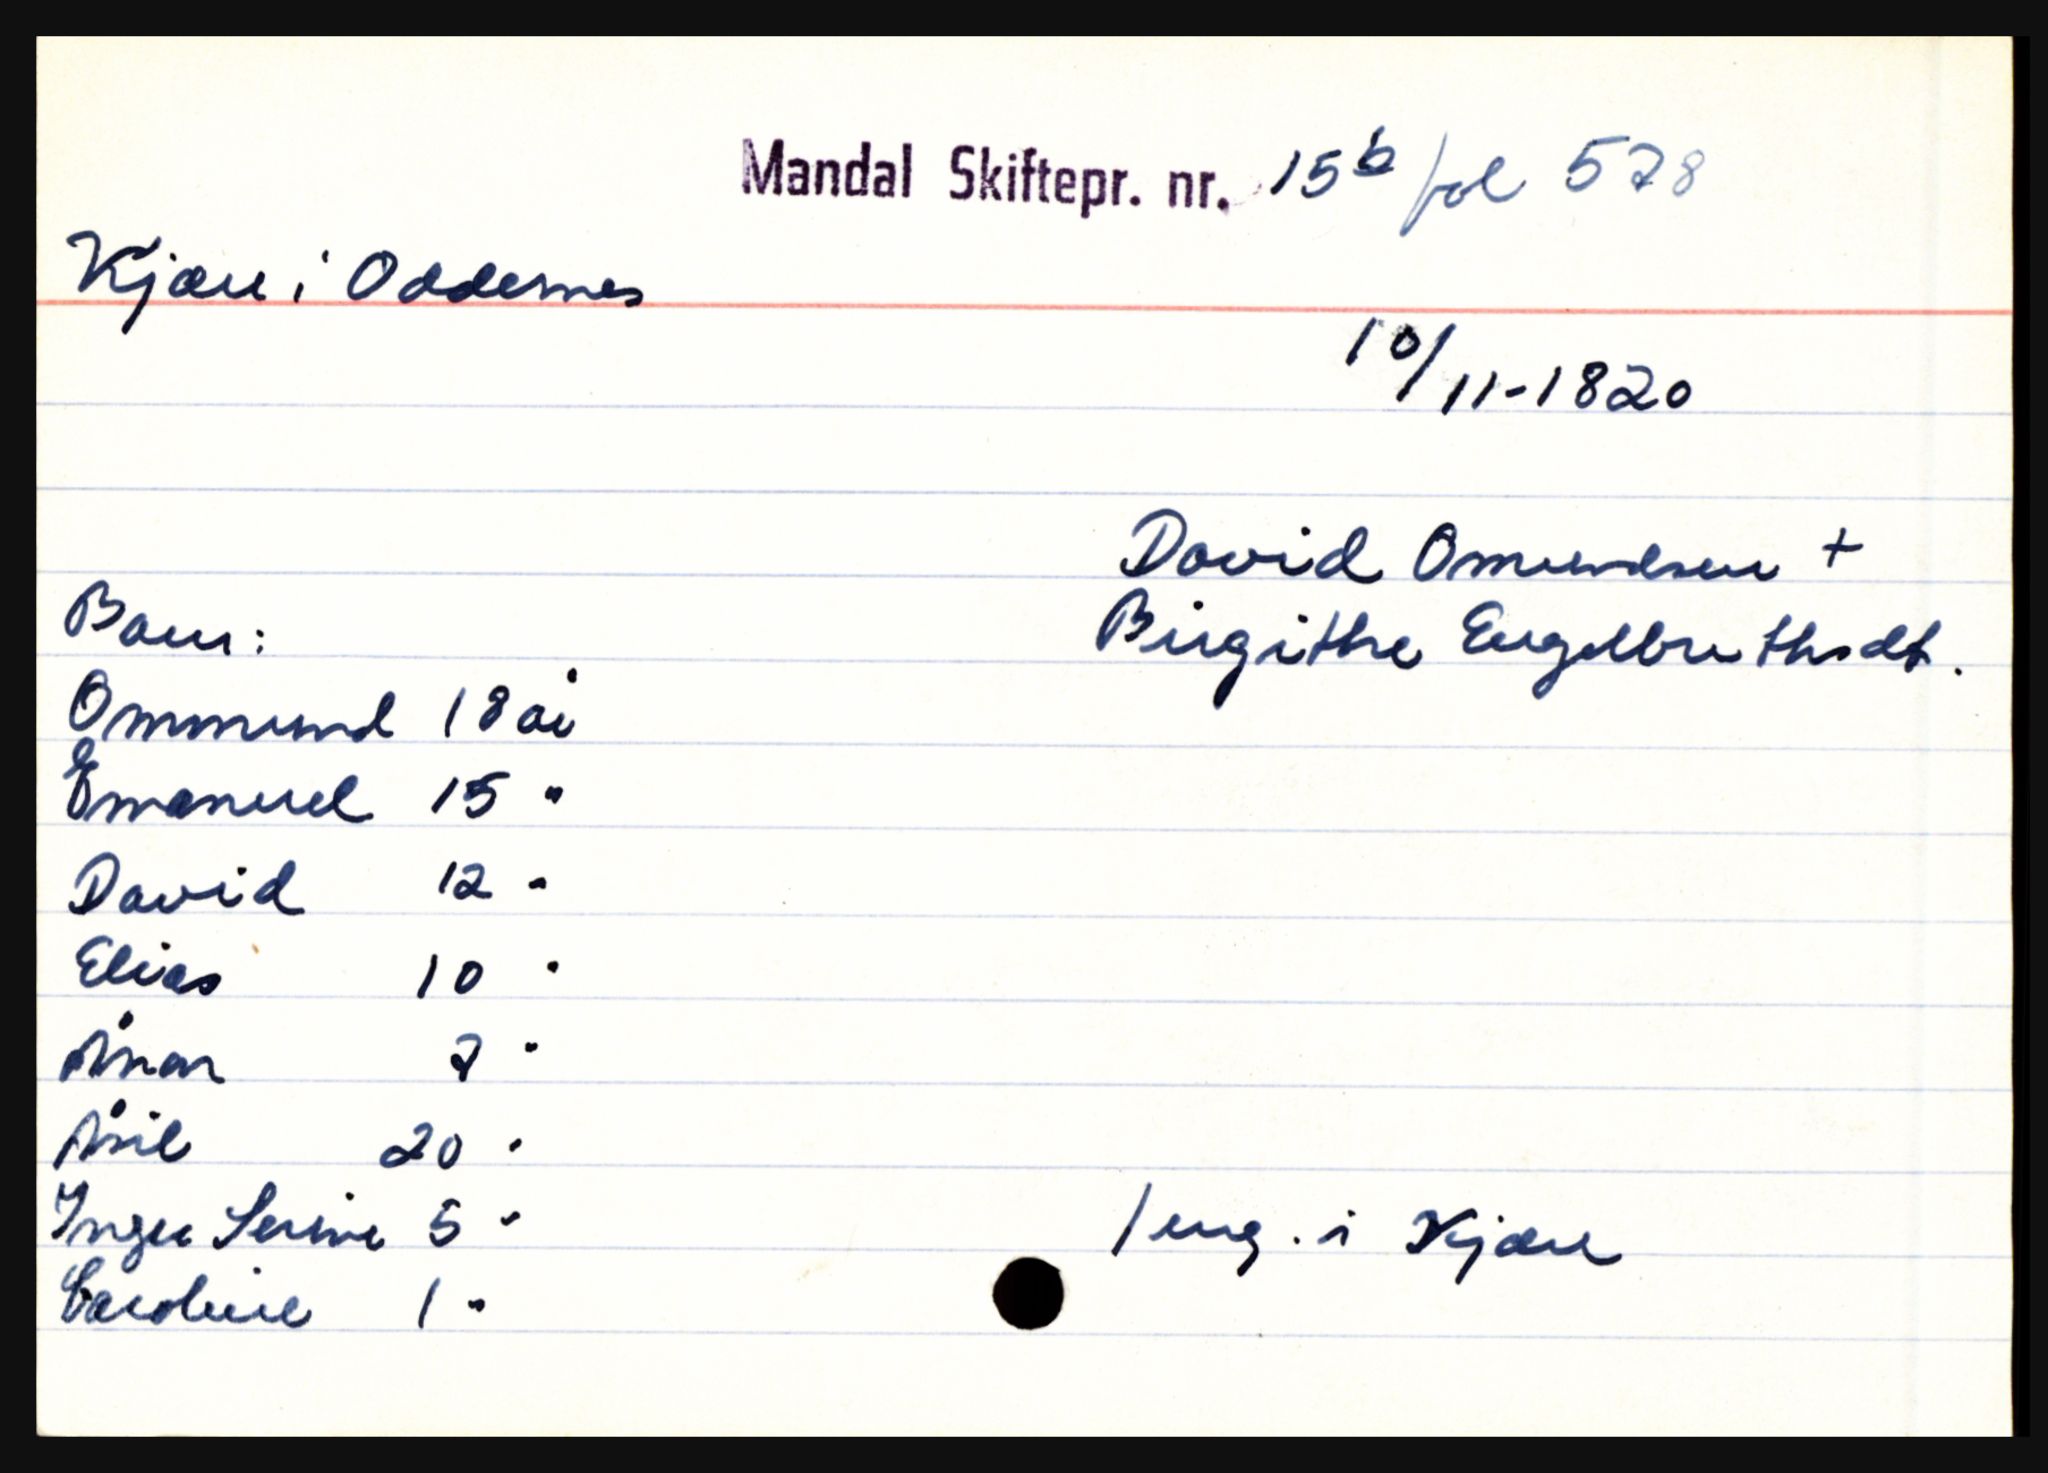 Mandal Skiftepr. nr. 15b fol 578
Kjære i Oddernes
10/11-1820
David Omundsen +
Birgithe Engelbrethsdt.
Barn:
Ommund 18 år
Emanuel 15 "
David 12 "
Elias 10 "
Anan 7 "
Åsil 20 "
Inger Serine 5 "
Caroline 1 "
1 eng. i Kjære